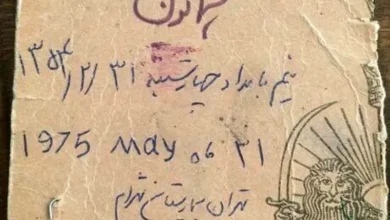 نیم بامداد چهارشنبه ۱۳۵۴/۲/۳۱
1975 May ماه ۲۱
تهران بیمارستان